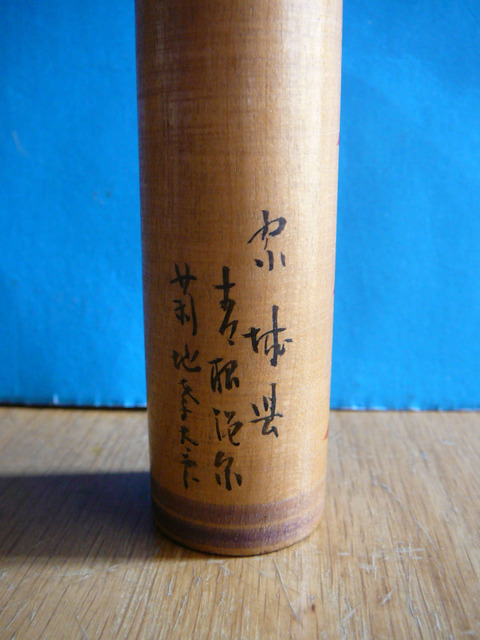 宮城県
青根温泉
菊地孝太郎